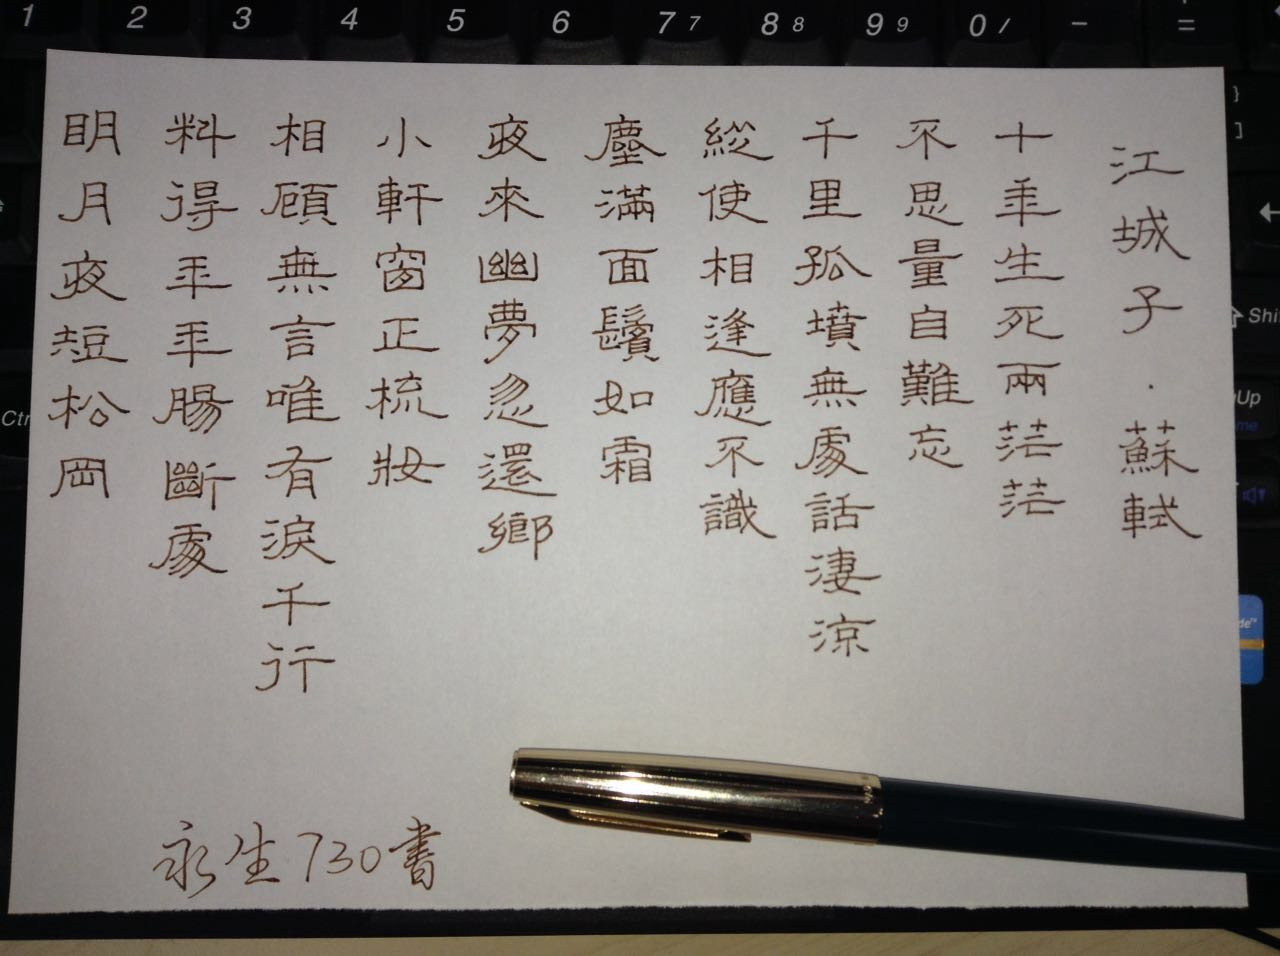 江城子·蘇軾
十年生死兩茫茫
不思量自難忘
千里孤墳無處話淒涼
縱使相逢應不識
塵滿面鬢如霜
夜來幽夢忽還鄉
小軒窗正梳妝
相顧無言唯有淚千行
料得年年腸斷處
明月夜短松岡
永生730書
1 2 3 4 5 6 7 7 8 8 9 9 0 / - =
} ]
Shif
Ctr